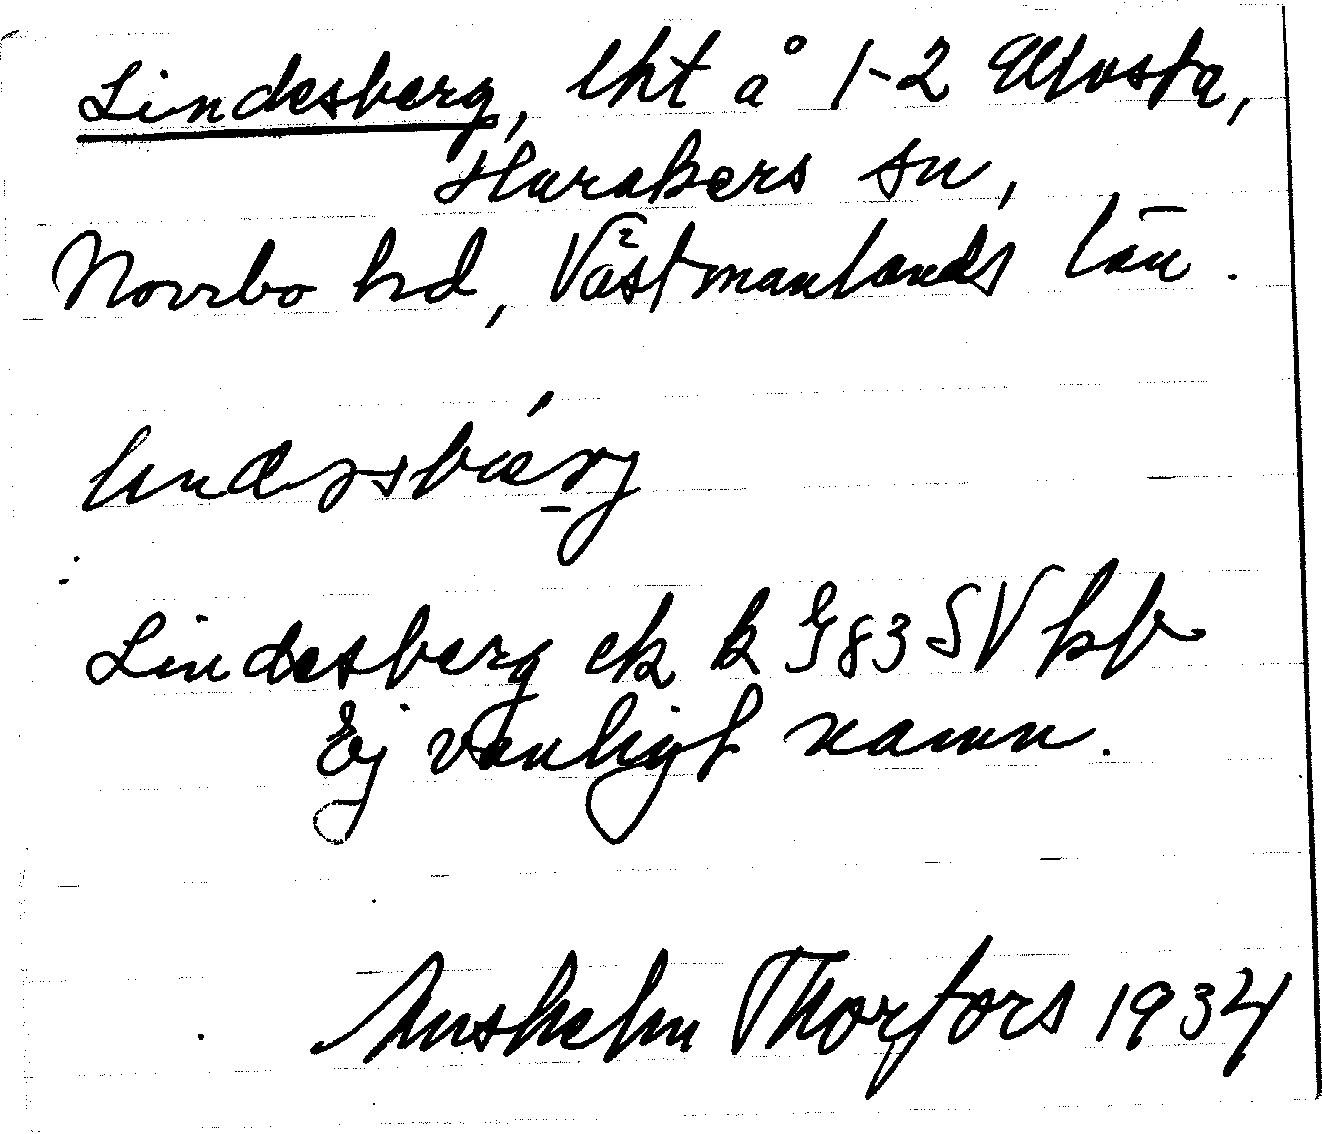 Lindesberg, lht å 1-2 Ållvesta,
Harakers sn,
Norrbo hd, Västmanlands län.
Lindesberg ek k G83 SV hb
Ej vanligt namn.
Anshelm Thorfors 1934